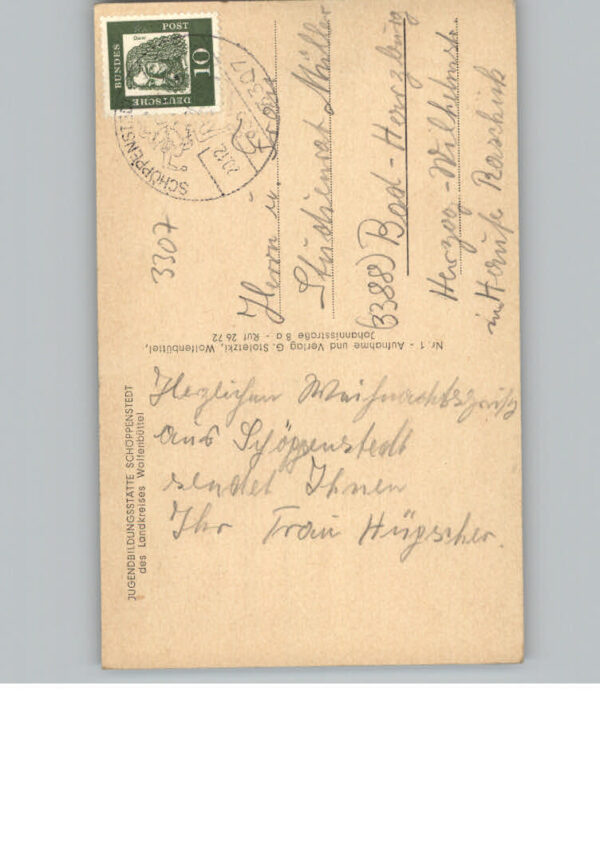 JUGENDBILDUNGSSTÄTTE SCHÖPPENSTEDT
des Landkreises Wolfenbüttel
Herzlichen Weihnachtsgruß
aus Schöppenstedt
sendet Ihnen
Ihr
Nr. 1 - Aufnahme und Verlag G. Stoletzki, Wolfenbüttel,
Johannisstraße 8 a - Ruf 26 72
DEUTSCHE
BUNDES
POST
10
Dürer
SCHÖPPENST
3307
Herrn u. Frau
Studienrat Müller
(3388) Bad-Harzburg
Herzog-Wilhelmstr.
im Hause Raschick